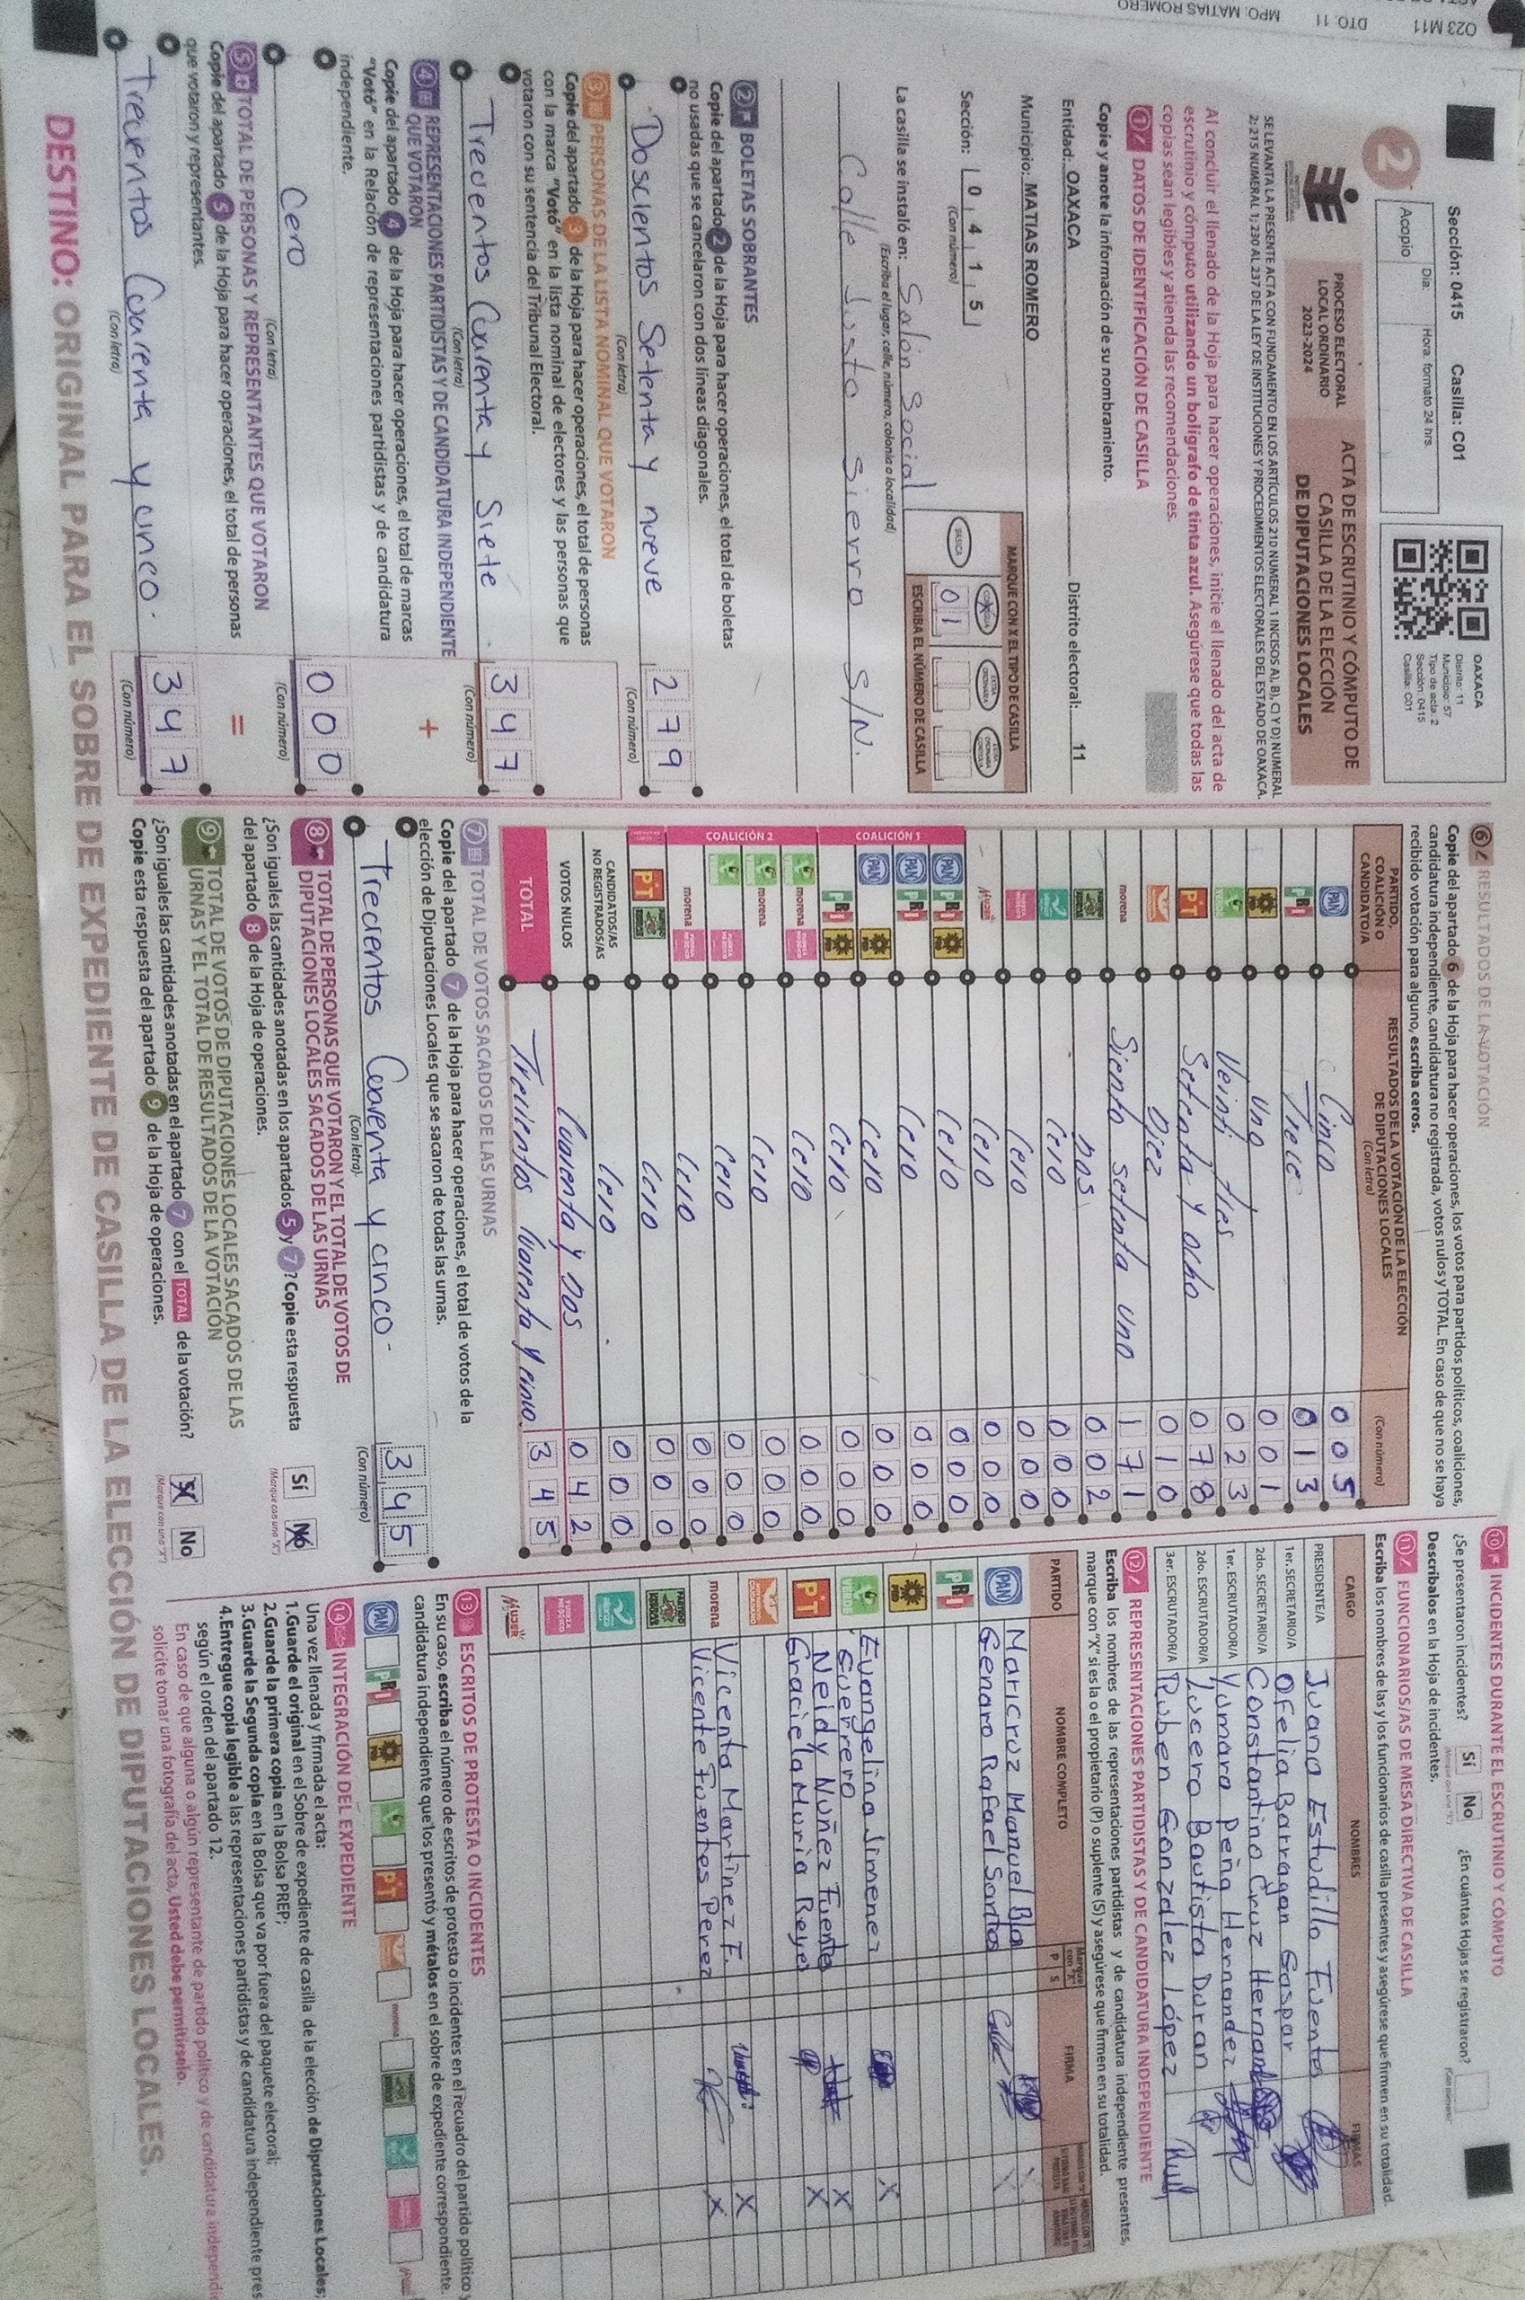 023 M11 DTO. 11 MPO. MATIAS ROMERO
Sección: 0415 Casilla: C01
Día: Hora: formato 24 hrs.
Acopio
OAXACA
Distrito: 11
Municipio: 57
Tipo de acta: 2
Sección: 0415
Casilla: C01
2
PROCESO ELECTORAL
LOCAL ORDINARIO
2023-2024
ACTA DE ESCRUTINIO Y CÓMPUTO DE
CASILLA DE LA ELECCIÓN
DE DIPUTACIONES LOCALES
SE LEVANTA LA PRESENTE ACTA CON FUNDAMENTO EN LOS ARTÍCULOS 210 NUMERAL 1 INCISOS A), B), C) Y D) NUMERAL
2; 215 NUMERAL 1; 230 AL 237 DE LA LEY DE INSTITUCIONES Y PROCEDIMIENTOS ELECTORALES DEL ESTADO DE OAXACA.
Al concluir el llenado de la Hoja para hacer operaciones, inicie el llenado del acta de
escrutinio y cómputo utilizando un bolígrafo de tinta azul. Asegúrese que todas las
copias sean legibles y atienda las recomendaciones.
1 DATOS DE IDENTIFICACIÓN DE CASILLA
Copie y anote la información de su nombramiento.
Entidad: OAXACA Distrito electoral: 11
Municipio: MATIAS ROMERO
Sección: 0 4 1 5
(Con número)
MARQUE CON X EL TIPO DE CASILLA
BÁSICA
ESCRIBA EL NÚMERO DE CASILLA
0 1
La casilla se instaló en: Salón Social
(Escriba el lugar, calle, número, colonia o localidad)
Calle Justo Sierro S/N.
2 BOLETAS SOBRANTES
Copie del apartado 2 de la Hoja para hacer operaciones, el total de boletas
no usadas que se cancelaron con dos líneas diagonales.
Doscientos Setenta y nueve 2 7 9
(Con letra) (Con número)
3 PERSONAS DE LA LISTA NOMINAL QUE VOTARON
Copie del apartado 3 de la Hoja para hacer operaciones, el total de personas
con la marca "Votó" en la lista nominal de electores y las personas que
votaron con su sentencia del Tribunal Electoral.
Trecientos Cuarenta y Siete 3 4 7
(Con letra) (Con número)
4 REPRESENTACIONES PARTIDISTAS Y DE CANDIDATURA INDEPENDIENTE
QUE VOTARON
+
Copie del apartado 4 de la Hoja para hacer operaciones, el total de marcas
"Votó" en la Relación de representaciones partidistas y de candidatura
independiente.
Cero 0 0 0
(Con letra) (Con número)
5 TOTAL DE PERSONAS Y REPRESENTANTES QUE VOTARON
=
Copie del apartado 5 de la Hoja para hacer operaciones, el total de personas
que votaron y representantes.
Trecientos Cuarenta y cinco. 3 4 7
(Con letra) (Con número)
6 RESULTADOS DE LA VOTACIÓN
Copie del apartado 6 de la Hoja para hacer operaciones, los votos para partidos políticos, coaliciones,
candidatura independiente, candidatura no registrada, votos nulos y TOTAL. En caso de que no se haya
recibido votación para alguno, escriba ceros.
PARTIDO,
COALICIÓN O
CANDIDATO/A
RESULTADOS DE LA VOTACIÓN DE LA ELECCIÓN
DE DIPUTACIONES LOCALES
(Con letra)
(Con número)
PAN Cinco 0 0 5
PRI Trece 0 1 3
PRD Uno 0 0 1
VERDE Veinti tres 0 2 3
PT Setenta y ocho 0 7 8
Diez 0 1 0
morena Siento setenta uno 1 7 1
Dos 0 0 2
Cero 0 0 0
Cero 0 0 0
Mujer Cero 0 0 0
COALICIÓN 1
PAN PRI PRD Cero 0 0 0
PAN PRI Cero 0 0 0
PAN PRD Cero 0 0 0
PRI PRD Cero 0 0 0
COALICIÓN 2
morena Cero 0 0 0
morena Cero 0 0 0
Cero 0 0 0
morena Cero 0 0 0
PT Cero 0 0 0
CANDIDATOS/AS
NO REGISTRADOS/AS Cero 0 0 0
VOTOS NULOS Cuarenta y Dos 0 4 2
TOTAL Trecientos Cuarenta y cinco. 3 4 5
7 TOTAL DE VOTOS SACADOS DE LAS URNAS
Copie del apartado 7 de la Hoja para hacer operaciones, el total de votos de la
elección de Diputaciones Locales que se sacaron de todas las urnas.
Trecientos Cuarenta y cinco- 3 4 5
(Con letra). (Con número)
8 TOTAL DE PERSONAS QUE VOTARON Y EL TOTAL DE VOTOS DE
DIPUTACIONES LOCALES SACADOS DE LAS URNAS
¿Son iguales las cantidades anotadas en los apartados 5 y 7? Copie esta respuesta
del apartado 8 de la Hoja de operaciones.
Sí No
(Marque con una "X")
9 TOTAL DE VOTOS DE DIPUTACIONES LOCALES SACADOS DE LAS
URNAS Y EL TOTAL DE RESULTADOS DE LA VOTACIÓN
¿Son iguales las cantidades anotadas en el apartado 7 con el TOTAL de la votación?
Copie esta respuesta del apartado 9 de la Hoja de operaciones.
Sí No
(Marque con una "X")
10 INCIDENTES DURANTE EL ESCRUTINIO Y CÓMPUTO
¿Se presentaron incidentes? Sí No ¿En cuántas Hojas se registraron?
(Marque con una "X") (Con número)
Descríbalos en la Hoja de incidentes.
11 FUNCIONARIOS/AS DE MESA DIRECTIVA DE CASILLA
Escriba los nombres de las y los funcionarios de casilla presentes y asegúrese que firmen en su totalidad.
CARGO NOMBRES FIRMAS
PRESIDENTE/A Juana Estudillo Fuentes
1er. SECRETARIO/A Ofelia Barragan Gaspar
2do. SECRETARIO/A Constantino Cruz Hernandez
1er. ESCRUTADOR/A Yumara Peña Hernandez
2do. ESCRUTADOR/A Lucero Bautista Duran
3er. ESCRUTADOR/A Ruben Gonzalez López
12 REPRESENTACIONES PARTIDISTAS Y DE CANDIDATURA INDEPENDIENTE
Escriba los nombres de las representaciones partidistas y de candidatura independiente presentes,
marque con "X" si es la o el propietario (P) o suplente (S) y asegúrese que firmen en su totalidad.
PARTIDO NOMBRE COMPLETO Marque con "X" P S FIRMA
PAN Maricruz Manuel Bla
Genaro Rafael Santos
PRI
PRD
VERDE Evangelina Jimenez X
Guerrero
PT Neidy Nuñez Fuentes X
Graciela Muria Reyes X
morena Vicenta Martinez F. X
Vicente Fuentes Perez X
Mujer
13 ESCRITOS DE PROTESTA O INCIDENTES
En su caso, escriba el número de escritos de protesta o incidentes en el recuadro del partido político
candidatura independiente que los presentó y métalos en el sobre de expediente correspondiente.
PAN PRI PRD PT morena
14 INTEGRACIÓN DEL EXPEDIENTE
Una vez llenada y firmada el acta:
1.Guarde el original en el Sobre de expediente de casilla de la elección de Diputaciones Locales;
2.Guarde la primera copia en la Bolsa PREP;
3.Guarde la Segunda copia en la Bolsa que va por fuera del paquete electoral;
4.Entregue copia legible a las representaciones partidistas y de candidatura independiente pres
según el orden del apartado 12.
En caso de que alguna o algún representante de partido político y de candidatura independi
solicite tomar una fotografía del acta, Usted debe permitírselo.
DESTINO: ORIGINAL PARA EL SOBRE DE EXPEDIENTE DE CASILLA DE LA ELECCIÓN DE DIPUTACIONES LOCALES.